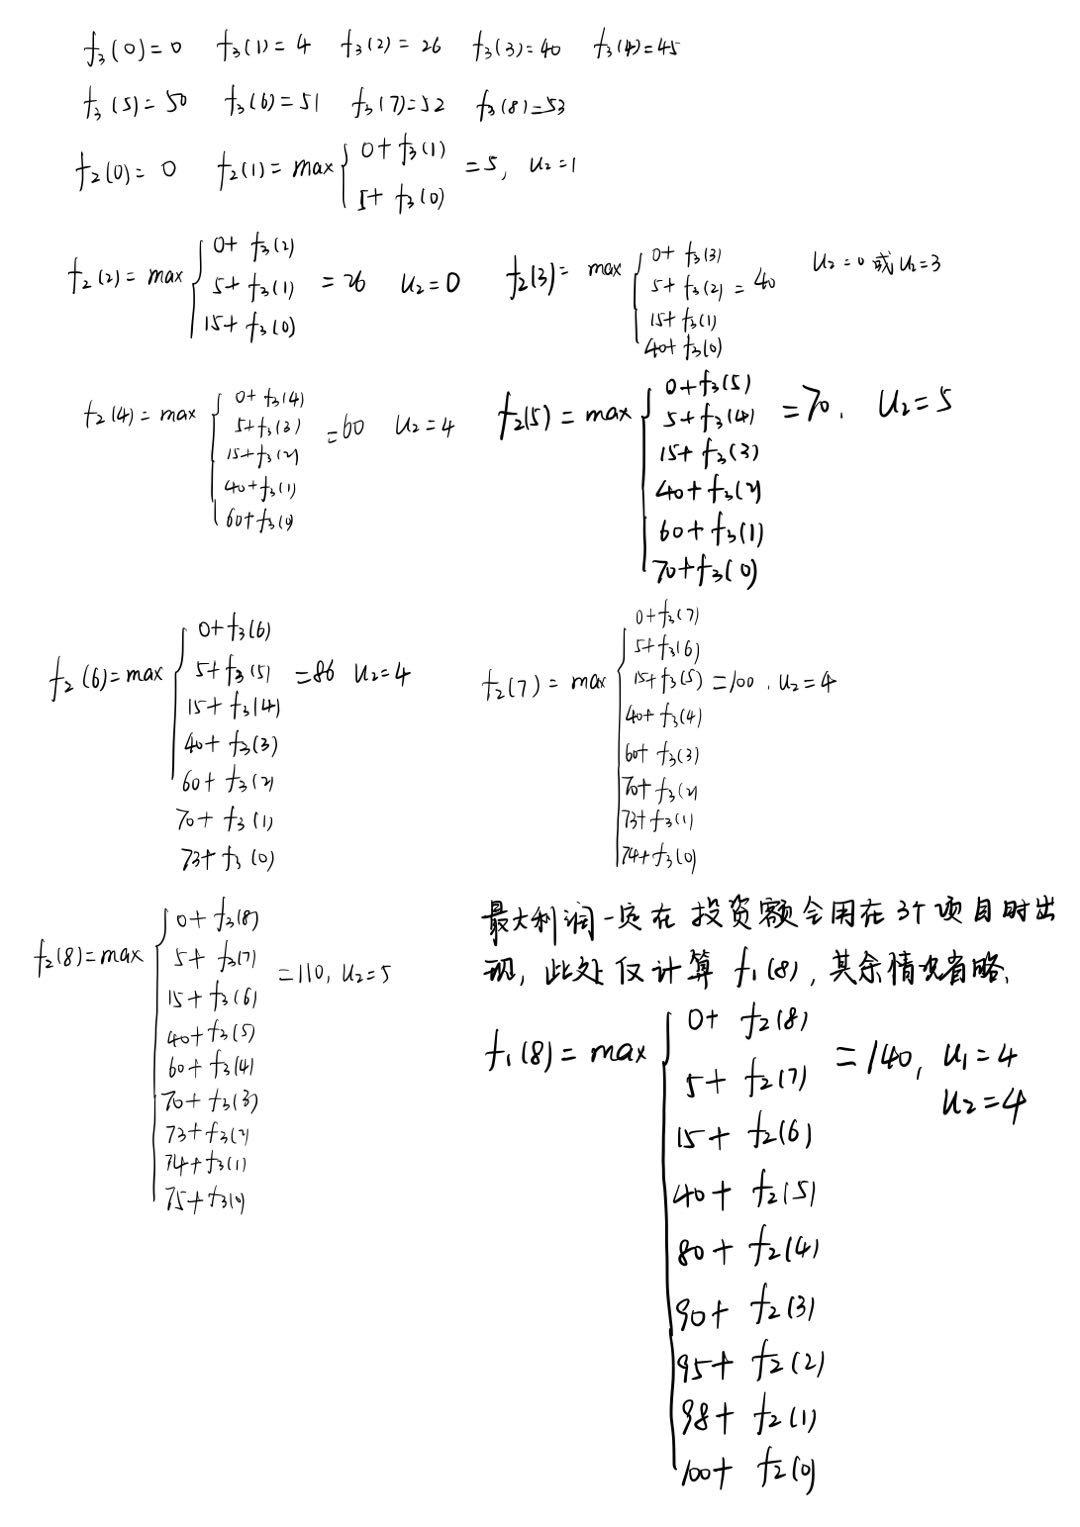 f₃(0)=0 f₃(1)=4 f₃(2)=26 f₃(3)=40 f₃(4)=45
f₃(5)=50 f₃(6)=51 f₃(7)=52 f₃(8)=53
f₂(0)=0 f₂(1)=max{ 0+f₃(1)
5+f₃(0)
=5, u₂=1
f₂(2)=max{ 0+f₃(2)
5+f₃(1)
15+f₃(0)
=26 u₂=0
f₂(3)=max{ 0+f₃(3)
5+f₃(2)
15+f₃(1)
40+f₃(0)
=40 u₂=0或u₂=3
f₂(4)=max{ 0+f₃(4)
5+f₃(3)
15+f₃(2)
40+f₃(1)
60+f₃(0)
=60 u₂=4
f₂(5)=max{ 0+f₃(5)
5+f₃(4)
15+f₃(3)
40+f₃(2)
60+f₃(1)
70+f₃(0)
=70, u₂=5
f₂(6)=max{ 0+f₃(6)
5+f₃(5)
15+f₃(4)
40+f₃(3)
60+f₃(2)
70+f₃(1)
73+f₃(0)
=86 u₂=4
f₂(7)=max{ 0+f₃(7)
5+f₃(6)
15+f₃(5)
40+f₃(4)
60+f₃(3)
70+f₃(2)
73+f₃(1)
74+f₃(0)
=100, u₂=4
f₂(8)=max{ 0+f₃(8)
5+f₃(7)
15+f₃(6)
40+f₃(5)
60+f₃(4)
70+f₃(3)
73+f₃(2)
74+f₃(1)
75+f₃(0)
=110, u₂=5
最大利润一定在投资额全用在3个项目时出
现, 此处仅计算f₁(8), 其余情况省略.
f₁(8)=max{ 0+f₂(8)
5+f₂(7)
15+f₂(6)
40+f₂(5)
80+f₂(4)
90+f₂(3)
95+f₂(2)
98+f₂(1)
100+f₂(0)
=140, u₁=4
u₂=4